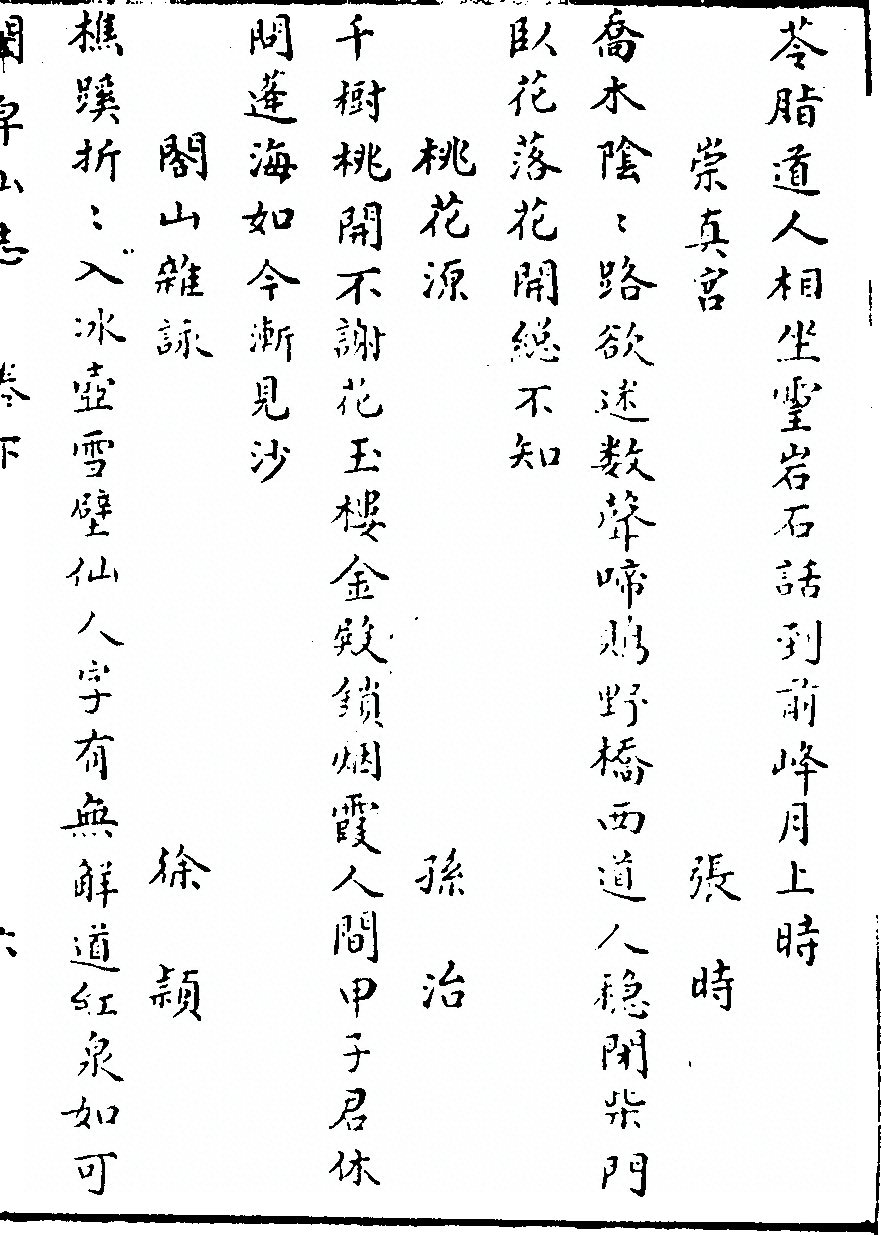 苓脂道人相坐靈岩石話到前峰月上時
崇真宮 張時
喬木陰〻路欲迷数聲啼鴂野橋西道人穏閉柴門
臥花落花開縂不知
桃花源 孫治
千樹桃開不謝花玉樓金殿鎖烟霞人間甲子君休
問蓬海如今漸見沙
閣山雜詠 徐穎
樵蹊折〻入冰壺雪壁仙人字有無鮮道紅泉如可
閣皁山志 卷下 六